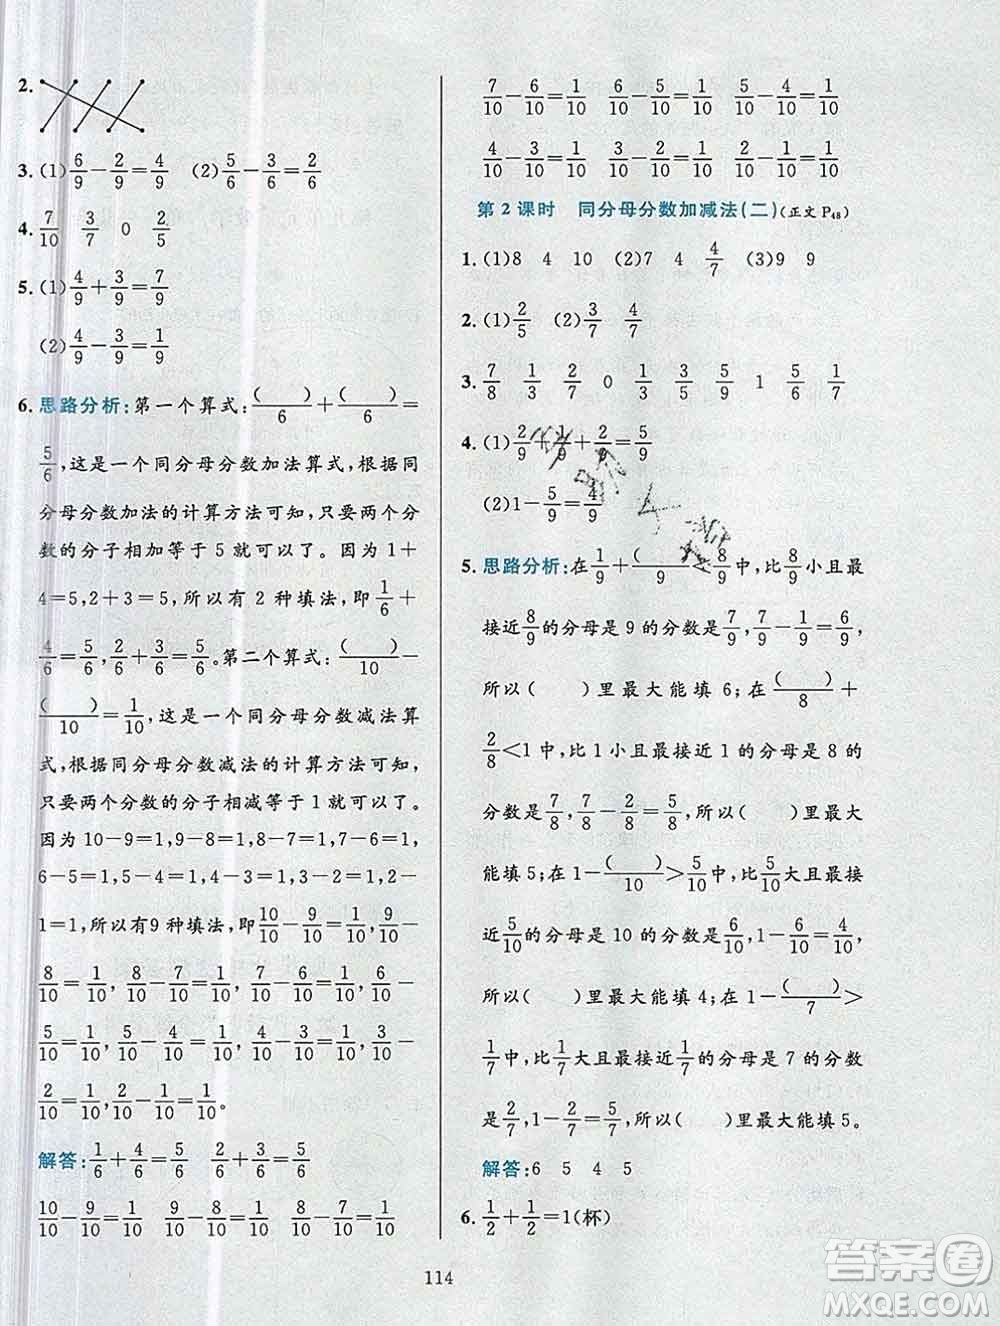 2.
3. (1) 6/9 − 2/9 = 4/9 (2) 5/6 − 3/6 = 2/6
4. 7/10 3/7 0 2/5
5. (1) 4/9 + 3/9 = 7/9
(2) 4/9 − 3/9 = 1/9
6. 思路分析:第一个算式:( )/6 + ( )/6 =
5/6,这是一个同分母分数加法算式,根据同
分母分数加法的计算方法可知,只要两个分
数的分子相加等于 5 就可以了。因为 1+
4=5,2+3=5,所以有 2 种填法,即 1/6 +
4/6 = 5/6, 2/6 + 3/6 = 5/6。第二个算式:( )/10 −
( )/10 = 1/10,这是一个同分母分数减法算
式,根据同分母分数减法的计算方法可知,
只要两个分数的分子相减等于 1 就可以了。
因为 10−9=1,9−8=1,8−7=1,7−6=1,
6−5=1,5−4=1,4−3=1,3−2=1,2−
1=1,所以有9 种填法,即 10/10 − 9/10 = 1/10, 9/10 −
8/10 = 1/10, 8/10 − 7/10 = 1/10, 7/10 − 6/10 = 1/10, 6/10 −
5/10 = 1/10, 5/10 − 4/10 = 1/10, 4/10 − 3/10 = 1/10, 3/10 −
2/10 = 1/10, 2/10 − 1/10 = 1/10。
解答: 1/6 + 4/6 = 5/6 2/6 + 3/6 = 5/6
10/10 − 9/10 = 1/10 9/10 − 8/10 = 1/10 8/10 − 7/10 = 1/10
7/10 − 6/10 = 1/10 6/10 − 5/10 = 1/10 5/10 − 4/10 = 1/10
4/10 − 3/10 = 1/10 3/10 − 2/10 = 1/10 2/10 − 1/10 = 1/10
第 2 课时 同分母分数加减法(二)(正文 P48)
1. (1)8 4 10 (2)7 4 4/7 (3)9 9
2. (1) 2/5 (2) 3/7 4/7
3. 7/8 1/7 2/7 0 1/3 3/5 5/9 1 5/8 1/7
4. (1) 2/9 + 1/9 + 2/9 = 5/9
(2)1− 5/9 = 4/9
5. 思路分析:在 1/9 + ( )/9 < 8/9 中,比 8/9 小且最
接近 8/9 的分母是 9 的分数是 7/9, 7/9 − 1/9 = 6/9,
所以( )里最大能填 6;在 ( )/8 +
2/8 <1 中,比 1 小且最接近 1 的分母是 8 的
分数是 7/8, 7/8 − 2/8 = 5/8,所以( )里最大
能填 5;在 1− ( )/10 > 5/10 中,比 5/10 大且最接
近 5/10 的分母是 10 的分数是 6/10,1− 6/10 = 4/10,
所以( )里最大能填 4;在 1− ( )/7 >
1/7 中,比 1/7 大且最接近 1/7 的分母是 7 的分数
是 2/7,1− 2/7 = 5/7,所以( )里最大能填 5。
解答:6 5 4 5
6. 1/2 + 1/2 =1(杯)
114
答案圈
MXQE.COM